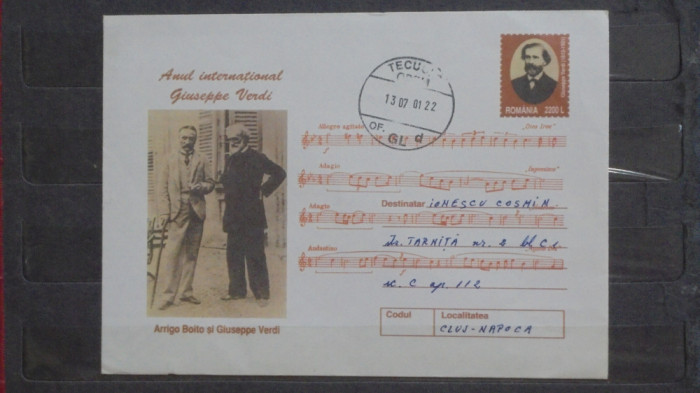 Anul internațional
Giuseppe Verdi
TECUCI
13 07 01 22
OF.
GL d
ROMÂNIA 2200 L
Allegro agitato
"Dies Irae"
Adagio
Adagio
Andantino
Destinatar IONESCU COSMIN
Str. TARNIȚA nr. 2 bl. C1
sc. C ap. 112
Codul
Localitatea
CLUJ-NAPOCA
Arrigo Boito și Giuseppe Verdi